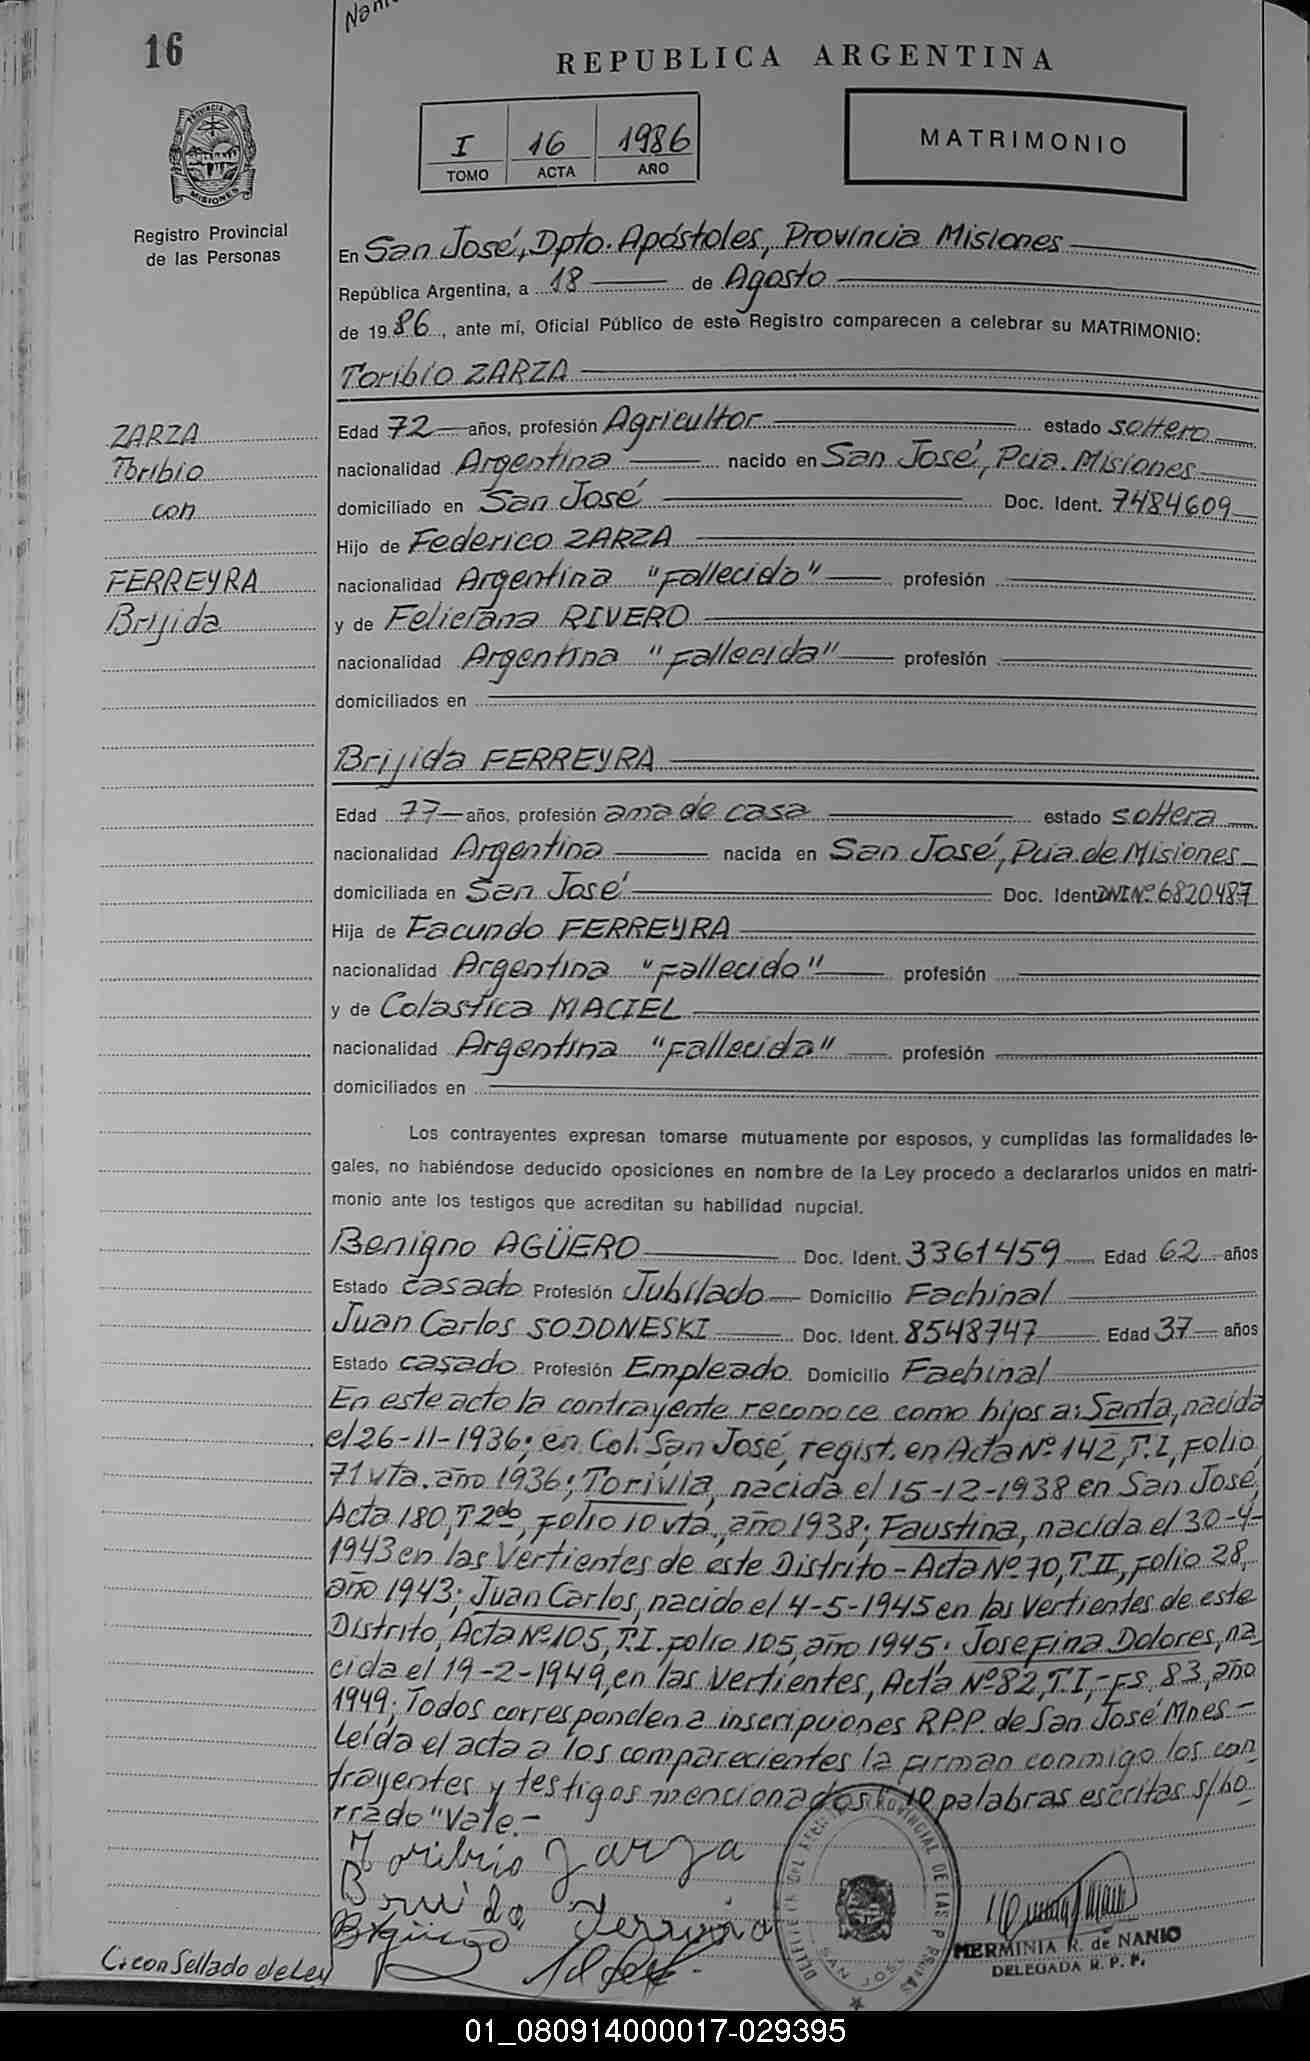 16
REPUBLICA ARGENTINA
I 16 1986
TOMO ACTA AÑO
MATRIMONIO
PROVINCIA DE
MISIONES
Registro Provincial
de las Personas
En San José, Dpto. Apóstoles, Provincia Misiones
República Argentina, a 18 de Agosto
de 1986, ante mí, Oficial Público de este Registro comparecen a celebrar su MATRIMONIO:
Toribio ZARZA
ZARZA
Toribio
con
FERREYRA
Brijida
Edad 72 años, profesión Agricultor estado soltero
nacionalidad Argentina nacido en San José, Pcia. Misiones
domiciliado en San José Doc. Ident. 7484609
Hijo de Federico ZARZA
nacionalidad Argentina "Fallecido" profesión
y de Feliciana RIVERO
nacionalidad Argentina "Fallecida" profesión
domiciliados en
Brijida FERREYRA
Edad 77 años, profesión ama de casa estado soltera
nacionalidad Argentina nacida en San José, Pcia. de Misiones
domiciliada en San José Doc. Ident. DNI Nº 6820487
Hija de Facundo FERREYRA
nacionalidad Argentina "Fallecido" profesión
y de Colastica MACIEL
nacionalidad Argentina "Fallecida" profesión
domiciliados en
Los contrayentes expresan tomarse mutuamente por esposos, y cumplidas las formalidades le-
gales, no habiéndose deducido oposiciones en nombre de la Ley procedo a declararlos unidos en matri-
monio ante los testigos que acreditan su habilidad nupcial.
Benigno AGÜERO Doc. Ident. 3361459 Edad 62 años
Estado casado Profesión Jubilado Domicilio Fachinal
Juan Carlos SODONESKI Doc. Ident. 8548747 Edad 37 años
Estado casado Profesión Empleado Domicilio Fachinal
En este acto la contrayente reconoce como hijos a: Santa, nacida
el 26-11-1936; en Col. San José, regist. en Acta Nº 142, T.I, Folio
71 vta. año 1936; Torivia, nacida el 15-12-1938 en San José,
Acta 180, T 2do, Folio 10 vta., año 1938; Faustina, nacida el 30-4-
1943 en las Vertientes de este Distrito - Acta Nº 70, T.II, Folio 28,
año 1943; Juan Carlos, nacido el 4-5-1945 en las Vertientes de este
Distrito, Acta Nº 105, T.I. Folio 105, año 1945; Josefina Dolores, na
cida el 19-2-1949, en las Vertientes, Acta Nº 82, T.I,- FS. 83, año
1949; Todos corresponden a inscripciones R.P.P. de San José Mnes -
Leída el acta a los comparecientes la firman conmigo los con
trayentes y testigos mencionados "10 palabras escritas s/bo
rrado "Vale.-
Toribio Zarza
HERMINIA R. de NANIO
DELEGADA R. P. P.
SAN JOSE
C. con Sellado de Ley
01_080914000017-029395